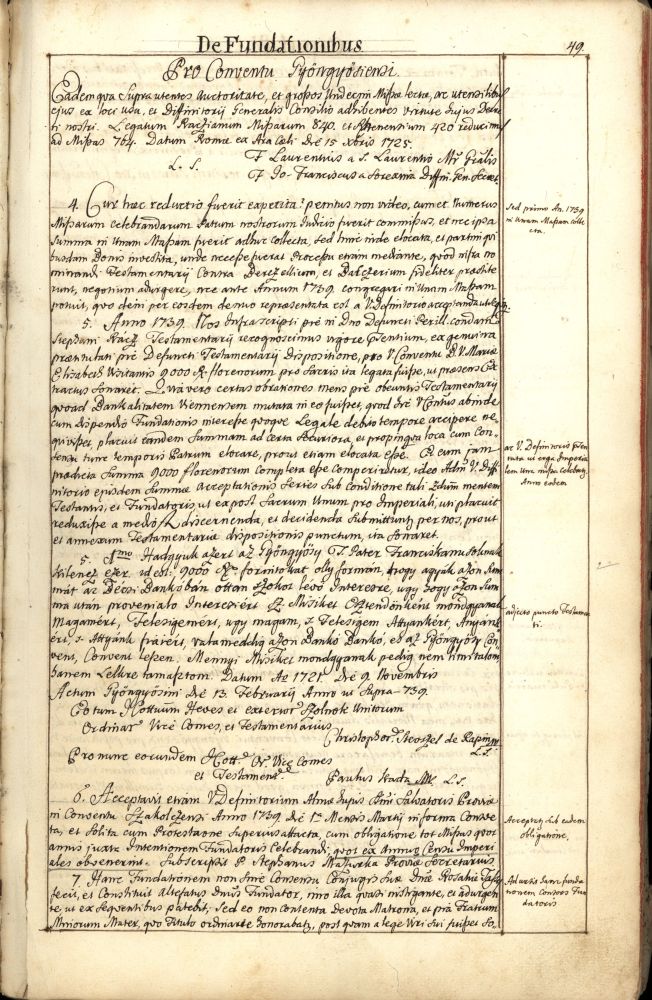 De Fundationibus
49.
Pro Conventu Gyöngyösiensi.
Eadem qua supra utentes Auctoritate, et grossos Undecim Missa lecta, ac utensilibus
ejus ex loci usu, et Diffinitorij Generalis Consilio adhibentes virtute hujus Decre-
ti nostri. Legatum Raczianum Missarum 840. et Rhenensium 420 reducimus
ad Missas 764. Datum Romae ex Ara Caeli die 15 xbris 1725.
L. S.
F Laurentius a S. Laurentio Mr Gralis
F Jo- Franciscus a Diffin. Gen. Secret.
4. Cur haec reductio fuerit expetita? penitus non video, cum et Numerus
Missarum celebrandarum Patrum nostrorum Judicio fuerit commissus, et nec ipsa
summa in Unam Massam fuerit adhuc collecta, sed hinc inde elocata, et partim qui
busdam Bonis investita, unde necesse fuerat Processu etiam mediante, quod infra no
minandi Testamentarij Contra et fideliter praestite
runt, negotium adurgere, nec ante Annum 1739 congregari in Unam Massam
potuit, quo dein per eosdem denuo repraesentata est a V. Definitorio acceptanda
Sed primo An. 1739
in Unam Massam colle
cta.
5. Anno 1739. Nos Infrascripti piè in Dno Defuncti Perill. condam
Stephani Rácz Testamentarij recognoscimus vigore praesentium, ex genuina
praetitulati piè Defuncti Testamentarij Dispositione, pro V. Conventu B. V. Mariae
Elisabeth Visitantis 9000 R. florenorum pro Sacris ita legata fuisse, ut praesens Ex
tractus sonaret. Quia vero certas ob rationes mens piè obeuntis Testamentarij
quoad Bankalitatem Viennensem mutata in eo fuisset, quod
cum dispendio Fundationis interesse quoque Legale debito tempore accipere ne-
quivisset, placuit tandem Summam ad Certa Securiora, et propinqua loca cum Con-
sensu tunc temporis Patrum elocare, prout etiam elocata esse. Et cum jam
praedicta Summa 9000 florenorum completa esse comperiretur, ideo Adm. V. Diffi-
nitorio ejusdem Summae acceptationis series sub Conditione tali mentem
Testantis, et Fundatoris ut ex post Sacrum Unum pro Imperiali, uti placuit
reduxisse a modo discernenda, et decidenda Submittunt per nos, prout
et annexum Testamentariae dispositionis punctum, ita sonaret.
ac V. Definitorio
tata ut erga Imperia
lem Una missa celebretur
Anno eodem
5. Hadgyuk azért az Gyöngyösy T. Pater Franciskanusoknak
Kilencz ezer id est: 9000 Rh forintokat olly formán, hogy agyák azon Sum
mát az Bécsi Bankóban ottan szokot lévö Interesre, ugy hogy azon Sum
ma után proveniáló Interesért Sz. Misiket Esztendönként mondgyanak
Magamért, Felesigemért, ugy magam, s Felesigem Attyankért, Anyank
ért, s Attyánk fiaiért, valameddig azon Bankó Bankó, és az Gyöngyösy Con
vent, Convent leszen. Mennyi Misiket mondgyanak pedig nem limitálom
hanem Lelkre támasztom. Datum Ao 1721. die 9 Novembris
adjecto puncto Testamen
ti.
Actum Gyöngyösini die 13 Februarij Anno ut Supra 739.
Cottuum Heves et exterior Szolnok Unitorum
Ordinar. Vice Comes, et Testamentarius
Christophor. de
L.S.
Pro nunc eorundem Cott. Or. Vice Comes
et Testament.
Paulus Rada L.S.
6. Acceptavit etiam V. Definitorium Almae hujus Ssmi Salvatoris Provae
in Conventu Szakolczensi Anno 1739 die 1a Mensis Martij in forma Consve
ta, et solita cum Protestatione Superius attacta, cum obligatione tot Missas quot
annis juxta Intentionem Fundatoris Celebrandi, quot ex Annuo Censu Imperi
ales obvenerint. Subscripsit P. Stephanus Provae Secretarius
Acceptat sub eadem
obligatione.
7. Hanc Fundationem non sine Consensu Conjugis suae Dnae Rosaliae
fecit, et Constituit Altefatus Dnus Fundator, imo illa quasi instigante, et adurgen
te ut ex sequentibus patebit; sed eo non contenta Devota Matrona, et pia Fratrum
Minorum Mater, quo titulo ordinarie honorabatur, post quam a lege Viri sui fuisset so-
hanc funda
tionem Consors Fun
datoris